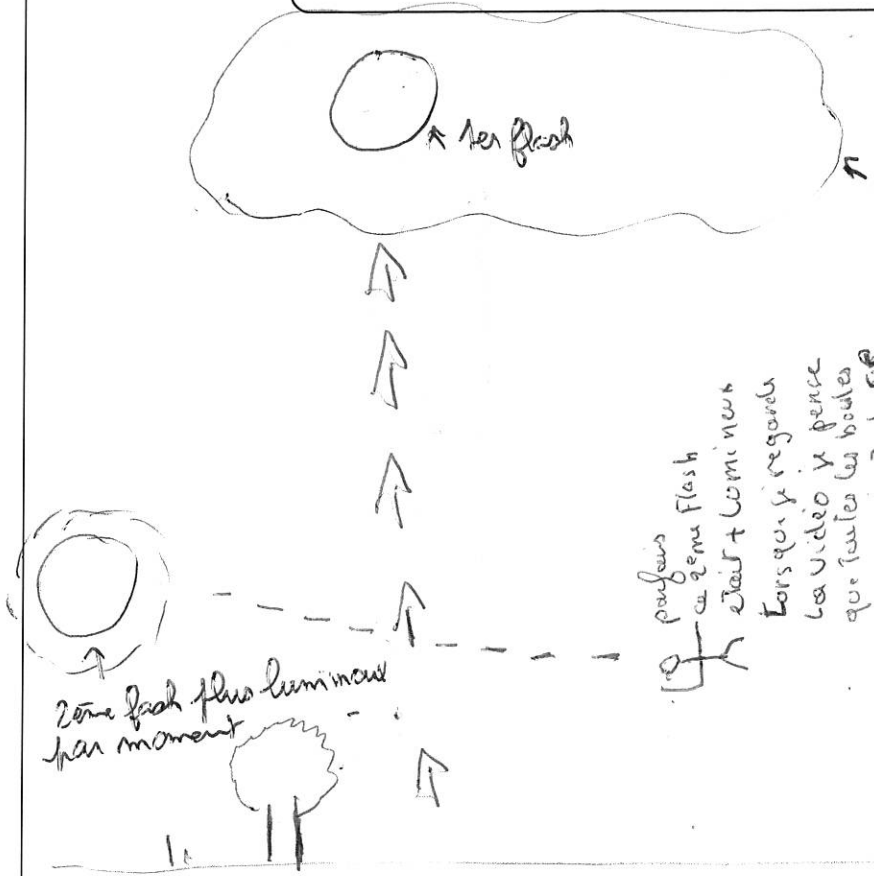 1er flash
2ème flash plus lumineux
par moment
parfois
ce 2ème Flash
était + lumineux
Lorsque je regarde
la vidéo je pense
que toutes les boules